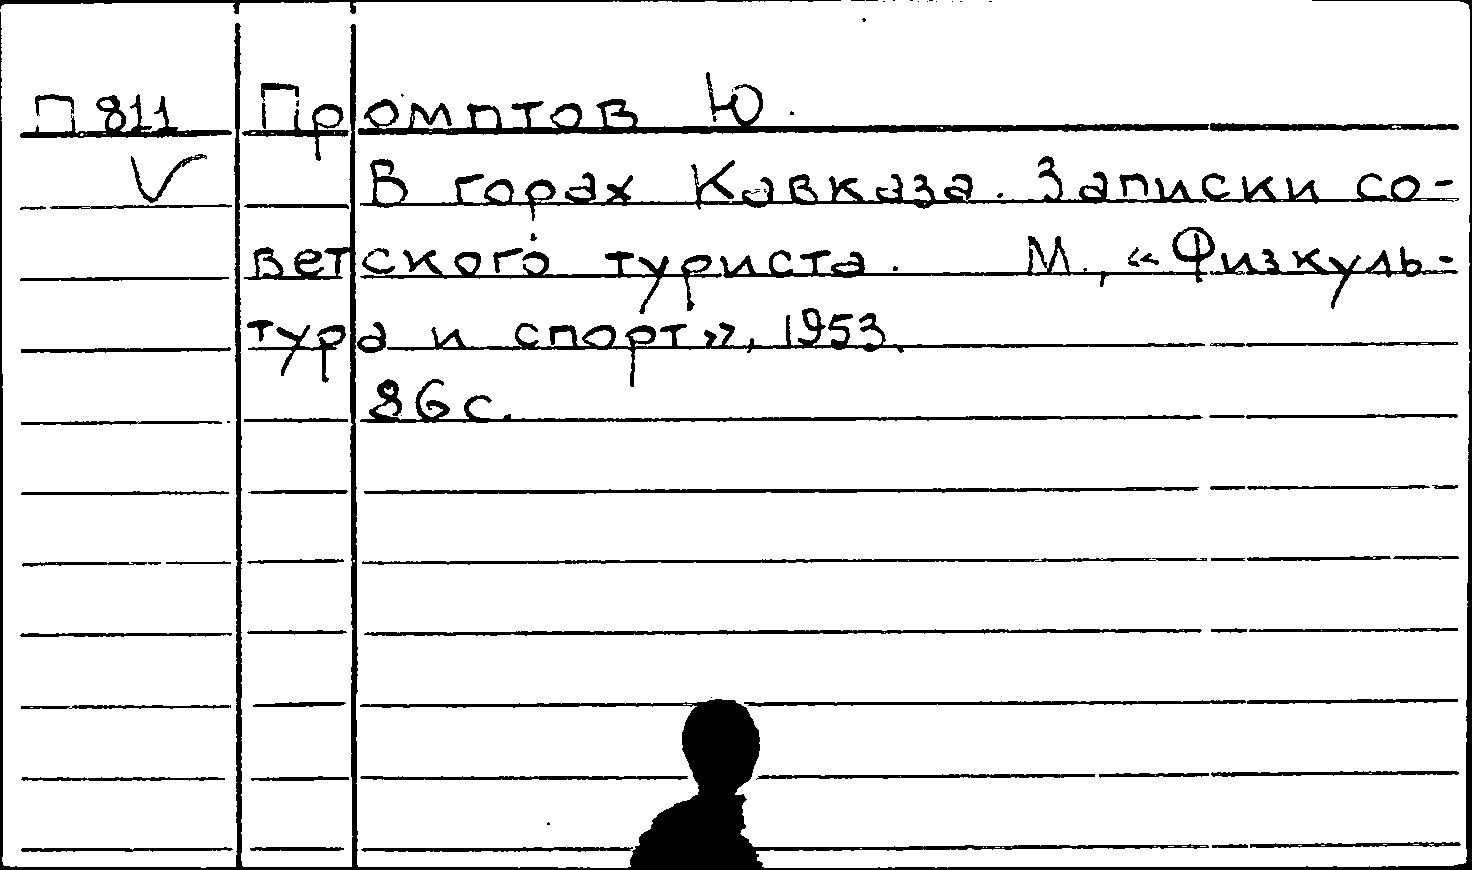 П 811 Промптов Ю.
В горах Кавказа. Записки со-
ветского туриста. М., «Физкуль-
тура и спорт», 1953.
86 с.